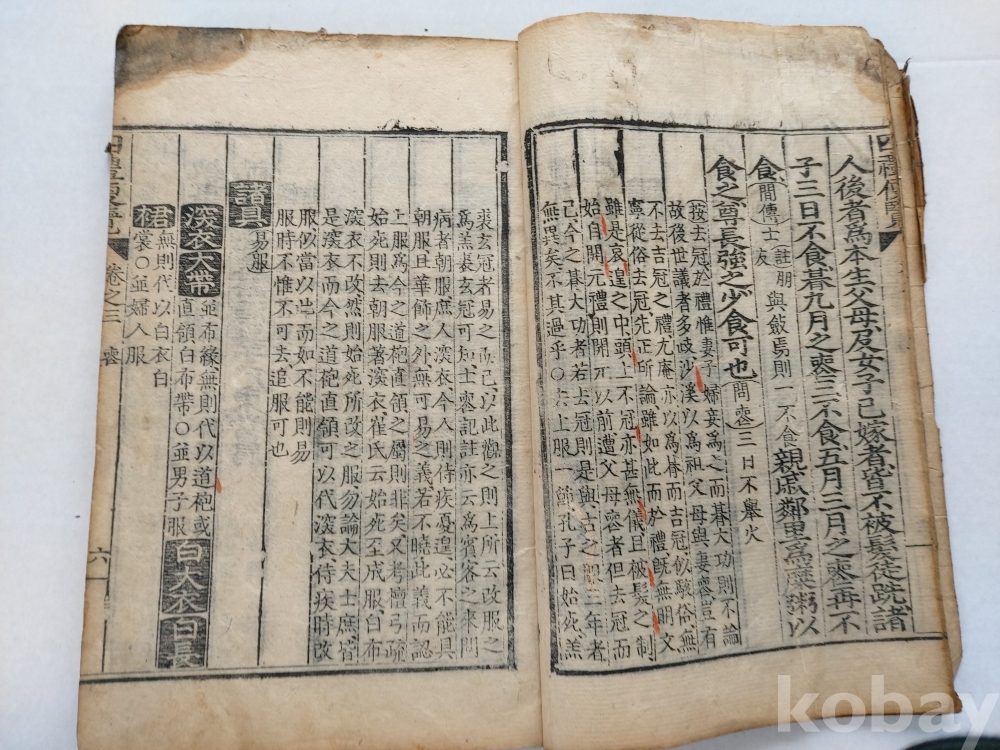 四禮便覽
人後者爲本生父母及女子已嫁者皆不被髮徒跣諸
子三日不食朞九月之喪三不食五月三月之喪再不
食間傳士友註朋與斂焉則一不食親戚鄰里爲糜粥以
食之尊長強之少食可也問喪三日不舉火
按去冠於禮惟妻子婦妾爲之而朞大功則不論
故後世議者多歧沙溪以爲祖父母與妻喪豈有
不去吉冠之禮尤庵亦以爲脊而吉冠似駭俗無
寧從俗去冠先正所論雖如此而於禮旣無明文
雖是哀遑之中頭上不冠亦甚無儀且被髮之制
始自開元禮則開元以前遭父母喪者但去冠而
已今之朞大功者若去冠則是與古之三年者
無異矣不其過乎○去上服一節孔子曰始死羔
裘玄冠者易之而已以此觀之則上所云改服之
爲羔裘玄冠可知士喪記註亦云爲賓客之來問
病者朝服庶人深衣今人則侍疾憂遑必不能具
朝服且華飾之外無可易之義若不曉此義而認
上服爲今之道袍直領之屬則非矣又考檀弓疏
始死則去朝服著深衣崔氏云始死至成服白布
深衣不改然則始死所改之服勿論大夫士庶皆
深衣而今之道袍直領可以代深衣侍疾時改
服似當以此而如不能則易
服時不惟不可去追服可也
諸具易服
深衣大帶並布緣無則代以道袍或
直領白布帶○並男子服
白大衣白長
裙無則代以白衣白
裳○並婦人服
四禮便覽 卷之三 喪 六
kobay